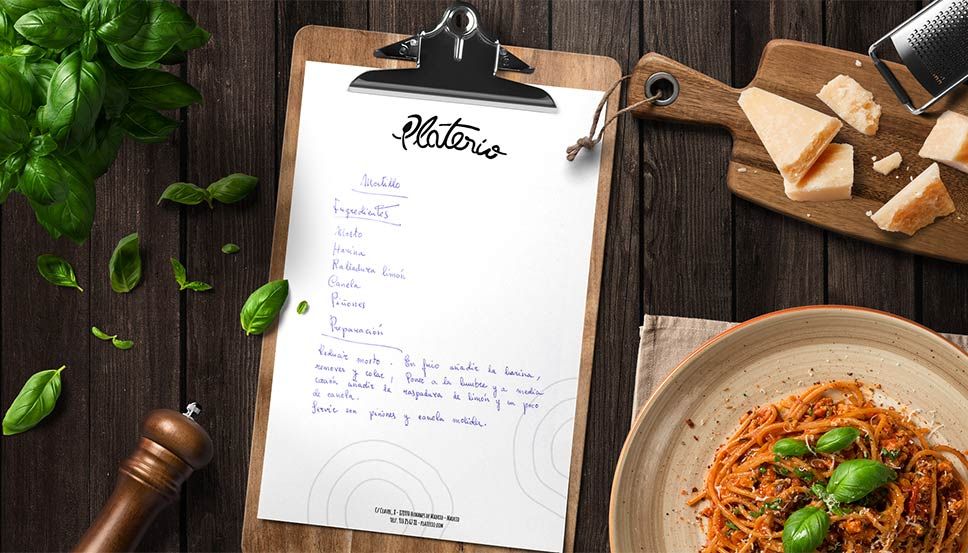 Platerio
Mostillo
Ingredientes
Mosto
Harina
Ralladura limón
Canela
Piñones
Preparación
Reducir mosto. En frío añadir la harina,
remover y colar; Poner a la lumbre y a media
cocción añadir la raspadura de limón y un poco
de canela.
Servir con piñones y canela molida.
C/ Clavel, - Madrid
Telf. - platerio.com